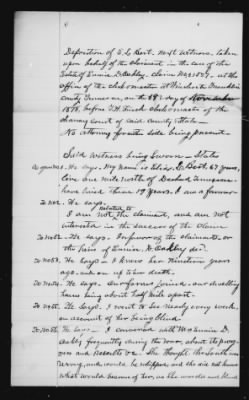 Deposition of E. C. Best. next witness, taken
upon behalf of the claimant in the case of the
Estate of Fannie D. Oakley, claim No 21527. at the
office of the clerk & master at Winchester Franklin
county Tennessee, on the 18th day of November
1878, before T. H. Finch clerk & master of the
chancery court of said county & State—
No attorney for either side being present.
Said witness being Sworn — States
He says. My name is Best, 67 years,
live one mile North of Decherd Tennessee—
have lived there 19 years. I am a farmer
He says.
related to
I am not the claimant, and am not
interested in the success of the claim
He says. In favor of the claimants, or
the heirs of Fannie D. Oakley decd.
He says — I knew her Nineteen years
ago. and on up to her death.
He says. Our farms joined. our dwelling
houses being about half mile apart.
He says. I went to see nearly every week.
on account of her being blind.
He says — I conversed with Mrs Fannie D.
Oakley frequently during the war, about its prog-
ress and Results &c. She thought the South was
wrong, and would be whipped, and she did not know
what would become of her, as she was old and blind